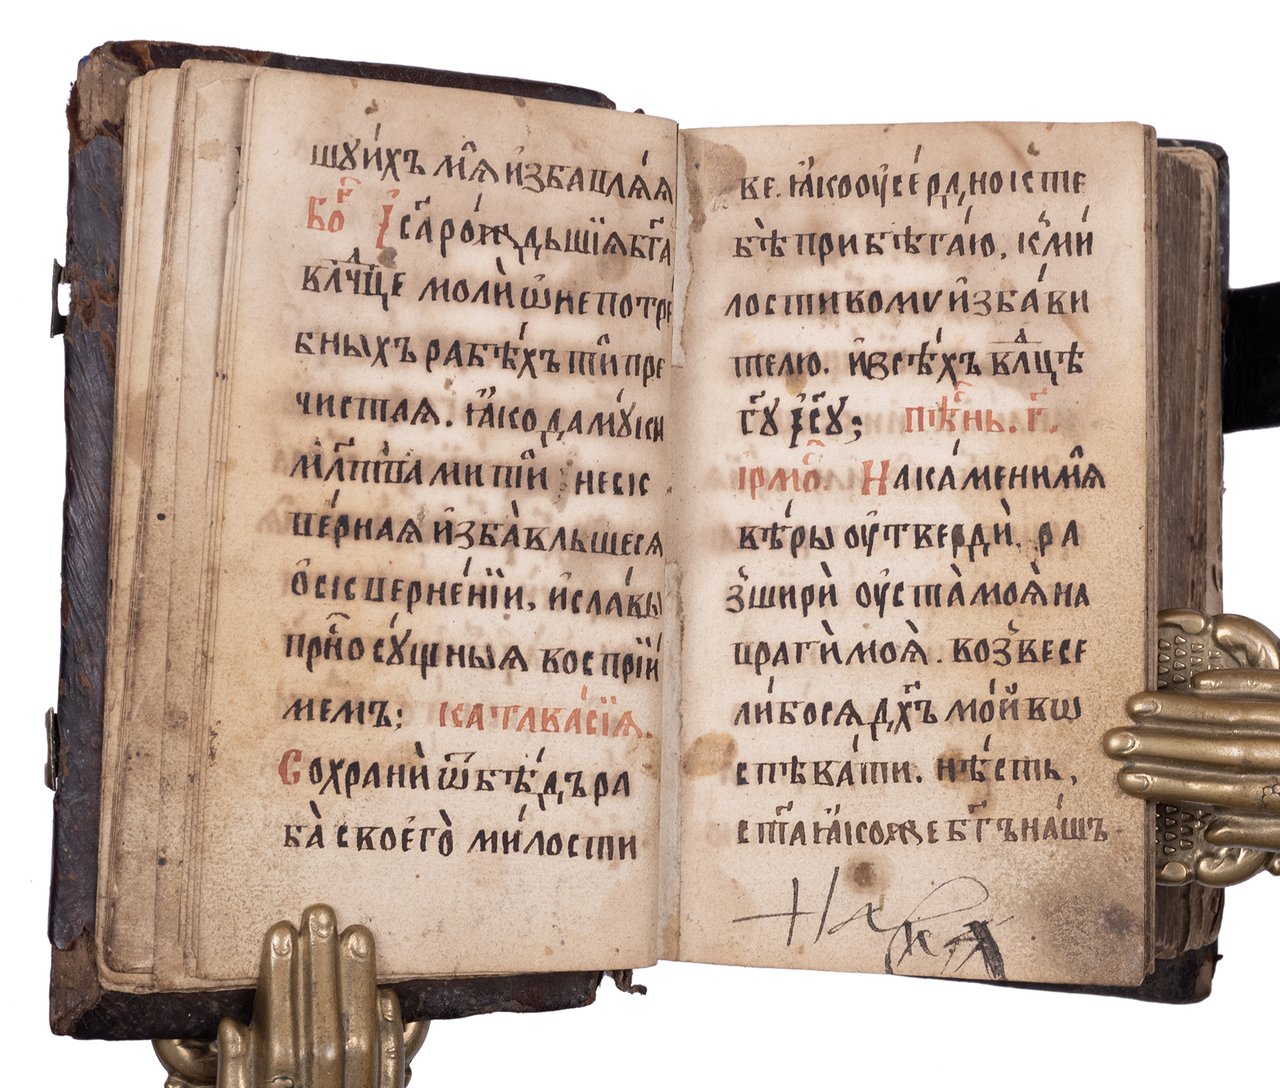 шꙋихъ мѧ҄ избавлѧ́ѧ
Бо҄г І҆са҄ ро́ждьшїѧ бг҃а
влⷣчце моли̇̀ ѿ непотре
бныхъ рабѣ́хъ тѝ пре
чистаѧ. ꙗ҆́ко да мꙋ́ки
мл҃твами тѝ и неис
ве́рнаѧ и҆зба̀вльшесѧ
ѿ скверне́нїи, и҆ сла́вы
прⷭ҇но сꙋ́щныѧ воспрїи́
мемъ; катава́сїѧ.
Сохрани̇̀ ѿ бѣ́дъ ра
ба̀ своего̀ ми́лости
ве. ꙗ҆́ко оусе́рдно к те
бѣ̀ прибѣга́ю, к ми́
лостивомѵ и҆зба́ви
телю. и҆ всѣ́хъ влⷣцѣ
гдⷭ҇ꙋ і҆сꙋ҄; пѣⷭ҇нь. г҃.
ірмо҄с. На камени мѧ҄
вѣ́ры оутверди̇̀, ра
з̾шири̇̀ оуста̀ моѧ̀ на
враги̇̀ моѧ̀. воз̾весе
ли́босѧ дх҃ъ мо́й вѡ
спѣва́ти. нѣ́сть,
ст҃а ꙗ҆́коже бг҃ъ на́шъ